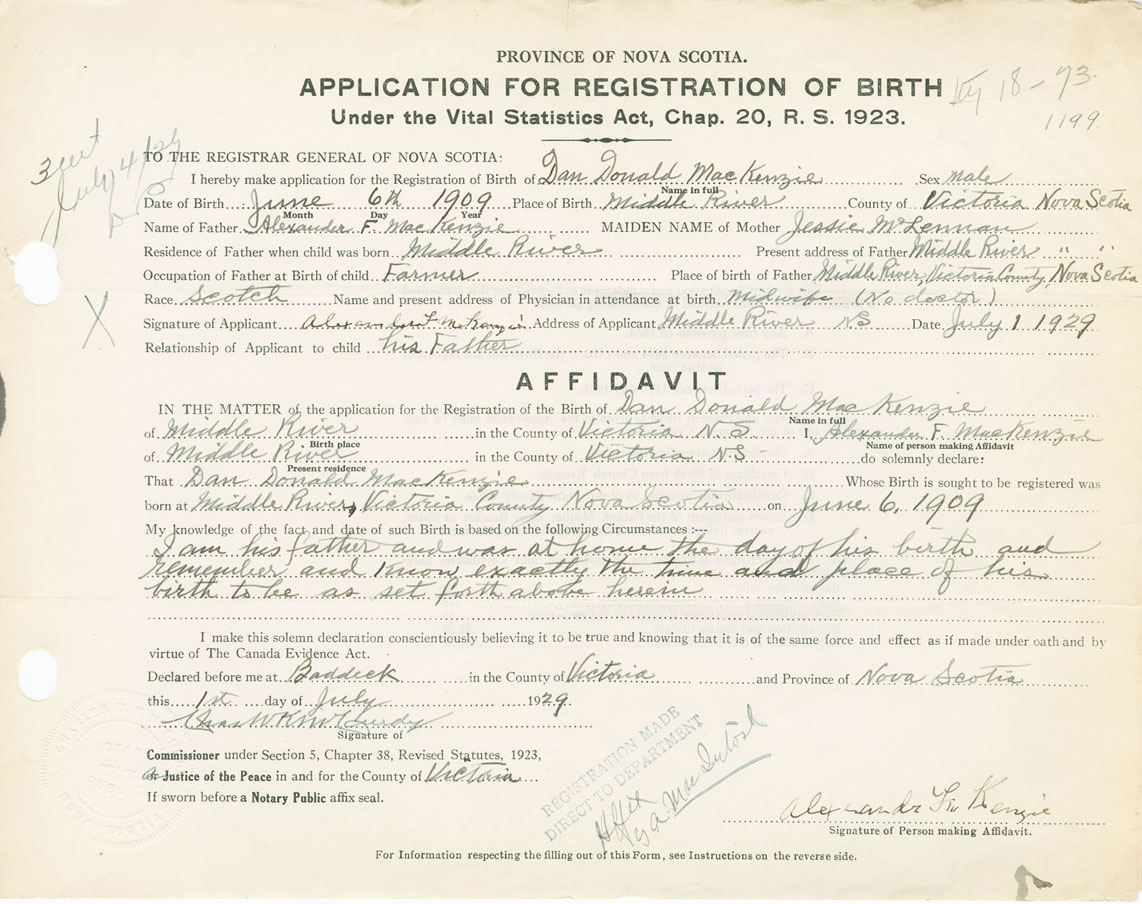 PROVINCE OF NOVA SCOTIA.
APPLICATION FOR REGISTRATION OF BIRTH
Under the Vital Statistics Act, Chap. 20, R. S. 1923.
18-73
1199
July 4/29
TO THE REGISTRAR GENERAL OF NOVA SCOTIA:
I hereby make application for the Registration of Birth of Dan Donald MacKenzie Sex male
Name in full
Date of Birth June 6th 1909 Place of Birth Middle River County of Victoria Nova Scotia
Month Day Year
Name of Father Alexander F. MacKenzie MAIDEN NAME of Mother Jessie McLennan
Residence of Father when child was born Middle River Present address of Father Middle River " "
Occupation of Father at Birth of child Farmer Place of birth of Father Middle River, Victoria County Nova Scotia
Race Scotch Name and present address of Physician in attendance at birth Midwife (No doctor)
X
Signature of Applicant Alexander F. McKenzie Address of Applicant Middle River NS Date July 1 1929
Relationship of Applicant to child his Father
AFFIDAVIT
IN THE MATTER of the application for the Registration of the Birth of Dan Donald MacKenzie
Name in full
of Middle River in the County of Victoria N.S I, Alexander F. MacKenzie
Birth place Name of person making Affidavit
of Middle River in the County of Victoria NS do solemnly declare:
Present residence
That Dan Donald MacKenzie Whose Birth is sought to be registered was
born at Middle River, Victoria County Nova Scotia on June 6, 1909
My knowledge of the fact and date of such Birth is based on the following Circumstances:--
I am his father and was at home the day of his birth and
remember and know exactly the time and place of his
birth to be as set forth above herein
I make this solemn declaration conscientiously believing it to be true and knowing that it is of the same force and effect as if made under oath and by
virtue of The Canada Evidence Act.
Declared before me at Baddeck in the County of Victoria and Province of Nova Scotia
this 1st day of July 1929.
Signature of
Commissioner under Section 5, Chapter 38, Revised Statutes, 1923,
or Justice of the Peace in and for the County of Victoria
If sworn before a Notary Public affix seal.
REGISTRATION MADE
DIRECT TO DEPARTMENT
MacIntosh
Signature of Person making Affidavit.
For Information respecting the filling out of this Form, see Instructions on the reverse side.